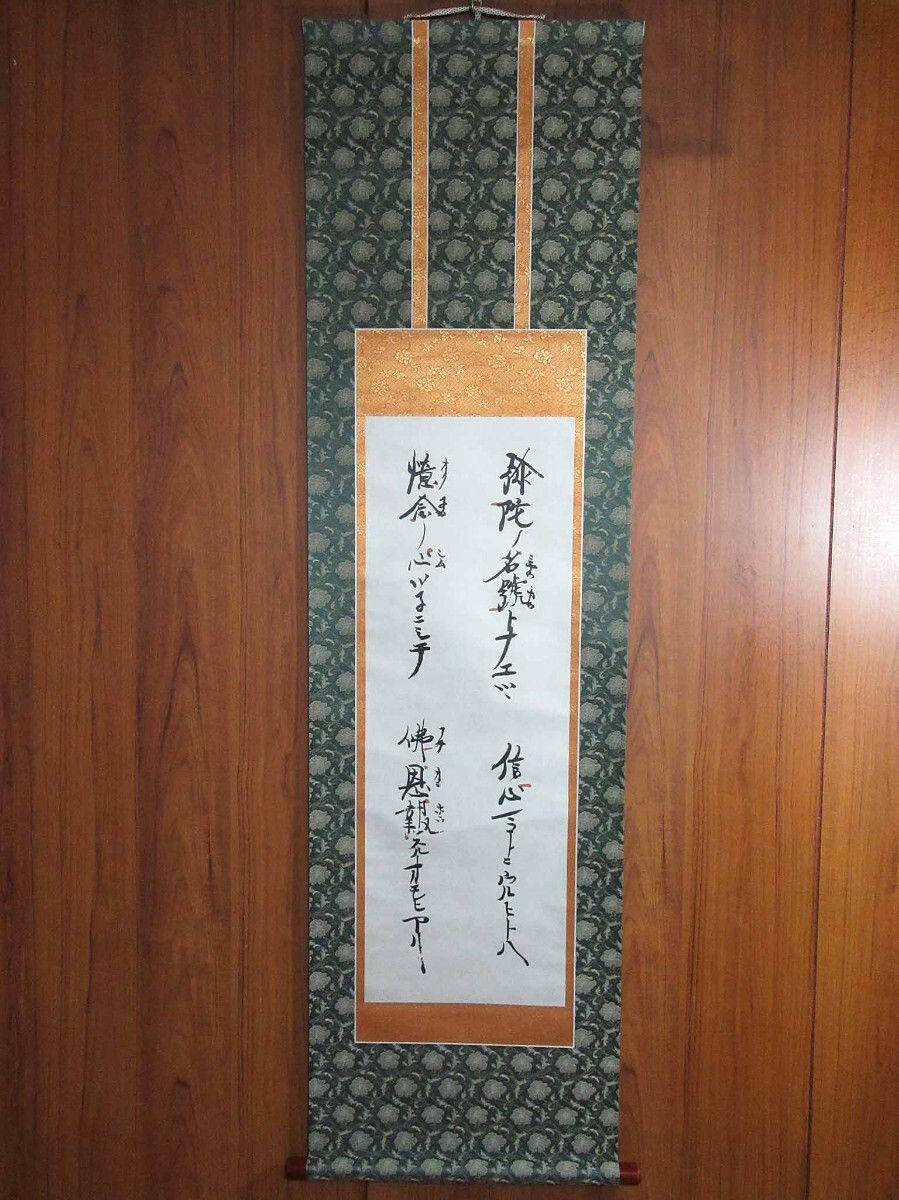 弥陀ノ名號トナエツヽ 信心マコトニウルヒトハ
憶念ノ心ツ子ニシテ 佛恩報スルオモヒアリ